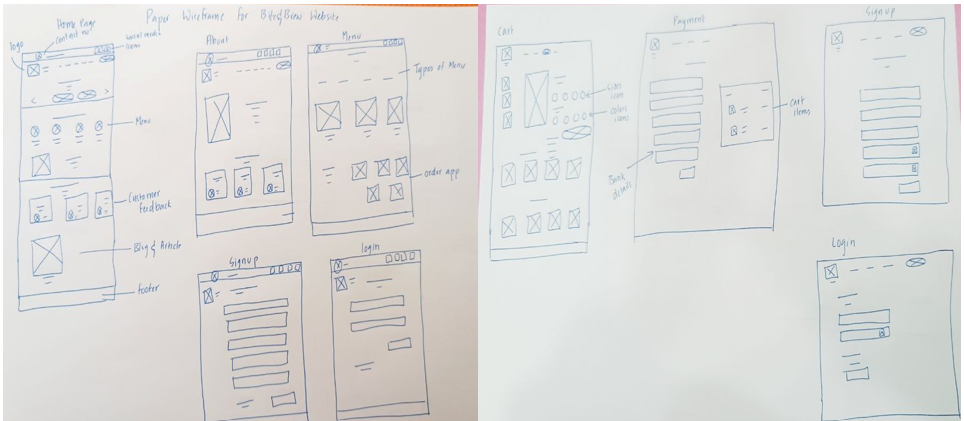 Paper Wireframe for Bite&Brew Website
Home Page
contact no
logo
social media
icons
Menu
Customer
Feedback
Blog & Article
footer
About
Menu
Types of Menu
order app
Signup
login
Cart
Sizes
icon
colors
icons
Payment
cart
items
Bank
details
Signup
Login